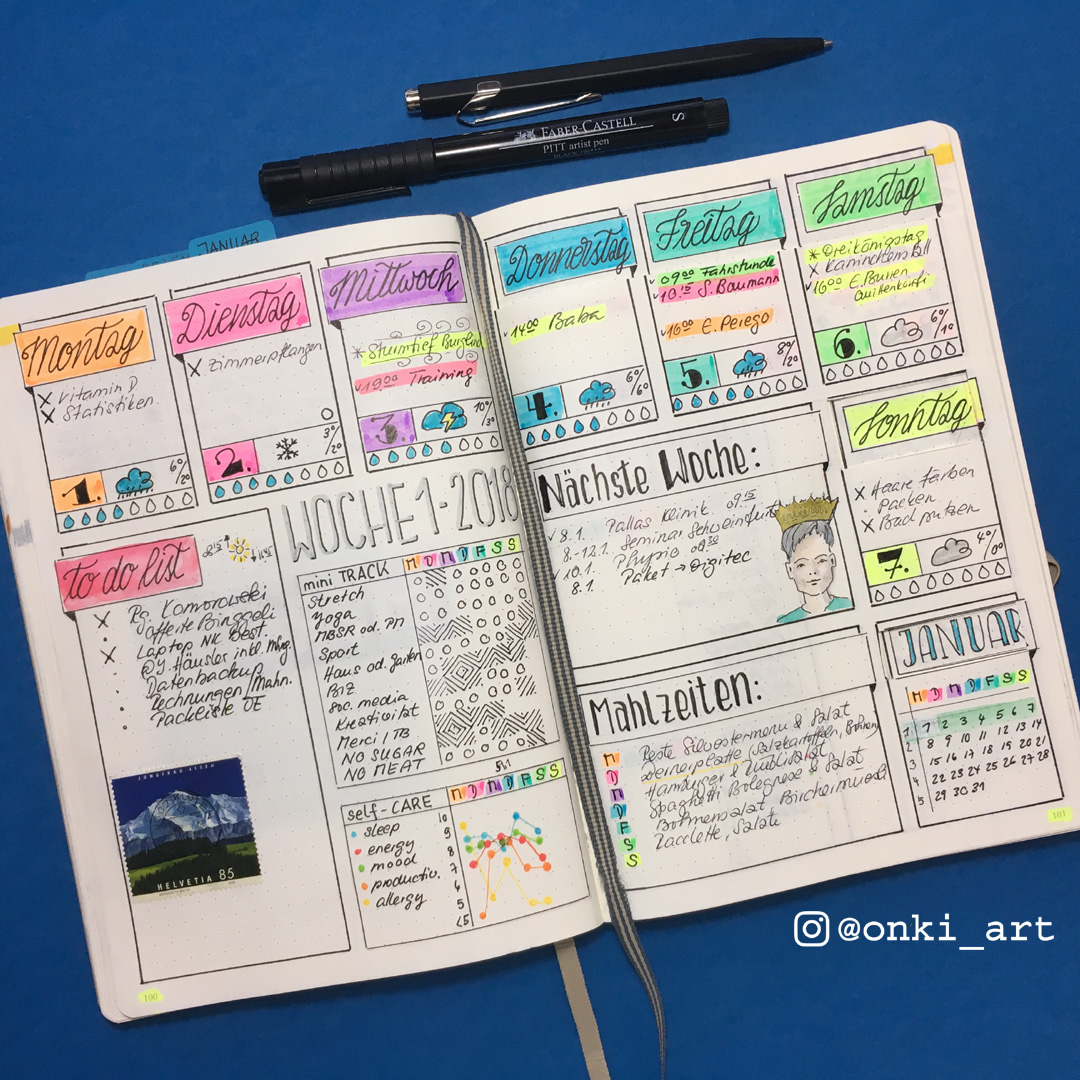 FABER-CASTELL
PITT artist pen
S
JANUAR
Montag
X Vitamin D
X Statistiken
1.
6°/2°
Dienstag
X Zimmerpflanzen
2.
3°/2°
Mittwoch
* Sturmtief Burglind
19:00 Training
3.
10°/3°
Donnerstag
14:00 Baba
4.
6°/6°
Freitag
09:00 Fahrstunde
10:15 S. Baumann
16:00 E. Perego
5.
8°/2°
Samstag
* Dreikönigstag
X Kaninchenstall
16:00 E. Buren
6.
6°/1°
Sonntag
X Haare färben
Packen
X Bad putzen
7.
4°/0°
WOCHE 1 - 2018
to do list
X Rg. Komorowski
Offerte Binggeli
Laptop NK Best.
X @Y. Häusler inkl.
Datenbackup
Rechnungen/Mahn.
Packliste DE
JUNGFRAU 4158M
HELVETIA 85
mini TRACK M D M D F S S
Stretch
Yoga
MBSR od. PM
Sport
Haus od. Garten
BIZ
Soc. media
Kreativität
Merci / TB
NO SUGAR
NO MEAT
self-CARE M D M D F S S
sleep 10
energy 9
mood 8
productiv. 7
allergy 6
5
<5
100
Nächste Woche:
8.1. Pallas Klinik 09:15
8.-12.1. Seminar Schweinfurt
10.1. Physio 09:30
8.1. Paket → Digitec
Mahlzeiten:
M Reste Silvestermenu & Salat
D Bernerplatte (Salzkartoffeln, Bohnen)
M Hamburger & Nüsslisalat
D Spaghetti Bolognese & Salat
F Bohnensalat, Birchermuesli
S Raclette, Salat
S
JANUAR
M D M D F S S
1 1 2 3 4 5 6 7
2 8 9 10 11 12 13 14
3 15 16 17 18 19 20 21
4 22 23 24 25 26 27 28
5 29 30 31
101
@onki_art